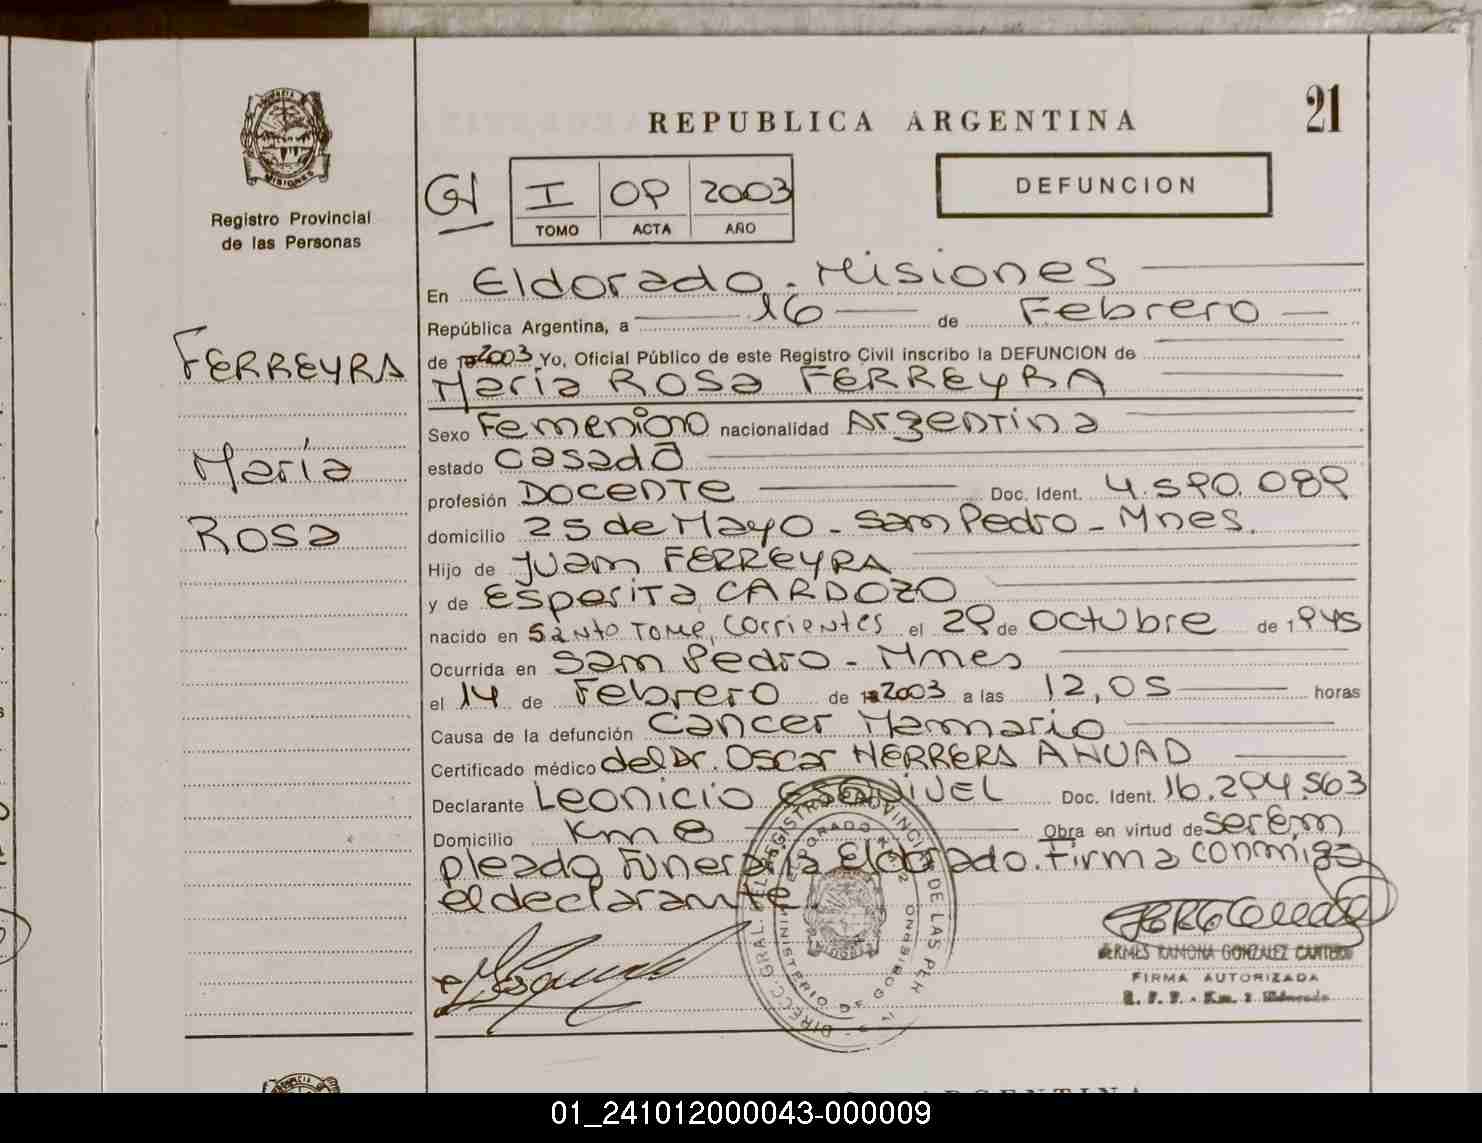 21
REPUBLICA ARGENTINA
PROVINCIA
MISIONES
Registro Provincial
de las Personas
I 09 2003
TOMO ACTA AÑO
DEFUNCION
FERREYRA
María
Rosa
En Eldorado - Misiones
República Argentina, a 16 de Febrero
de 2003 Yo, Oficial Público de este Registro Civil inscribo la DEFUNCION de
María Rosa FERREYRA
Sexo Femenino nacionalidad Argentina
estado casada
profesión Docente Doc. Ident. 4.590.089
domicilio 25 de Mayo - San Pedro - Mnes.
Hijo de Juan FERREYRA
y de Esperita CARDOZO
nacido en Santo Tome, Corrientes el 29 de octubre de 1945
Ocurrida en San Pedro - Mnes
el 14 de Febrero de 2003 a las 12,05 horas
Causa de la defunción Cancer Mamario
Certificado médico del Dr. Oscar HERRERA AHUAD
Declarante Leonicio ESQUIVEL Doc. Ident. 16.294.563
Domicilio Km 8 Obra en virtud de ser em
pleado Funeraria Eldorado. Firma conmigo
el declarante
DIRECC. GRAL. DEL REGISTRO PROVINCIAL DE LAS PER
MINISTERIO DE GOBIERNO
ELDORADO KM 2
HERMES RAMONA GONZALEZ CANTERO
FIRMA AUTORIZADA
R. P. P. - Km. 2 Eldorado
ARGENTINA
01_241012000043-000009